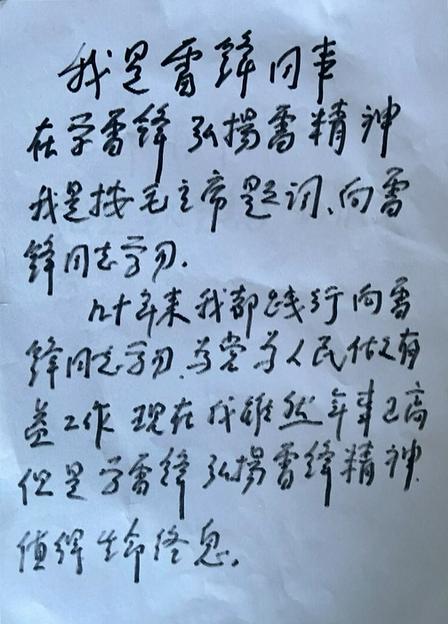 我是雷锋同事
在学雷锋 弘揚雷精神
我是按毛主席题词、向雷
锋同志学习.
几十年来我都践行向雷
锋同志学习、为党为人民做有
益工作 现在我虽然年事已高
但是学雷锋 弘揚雷锋精神.
值得生命终息。